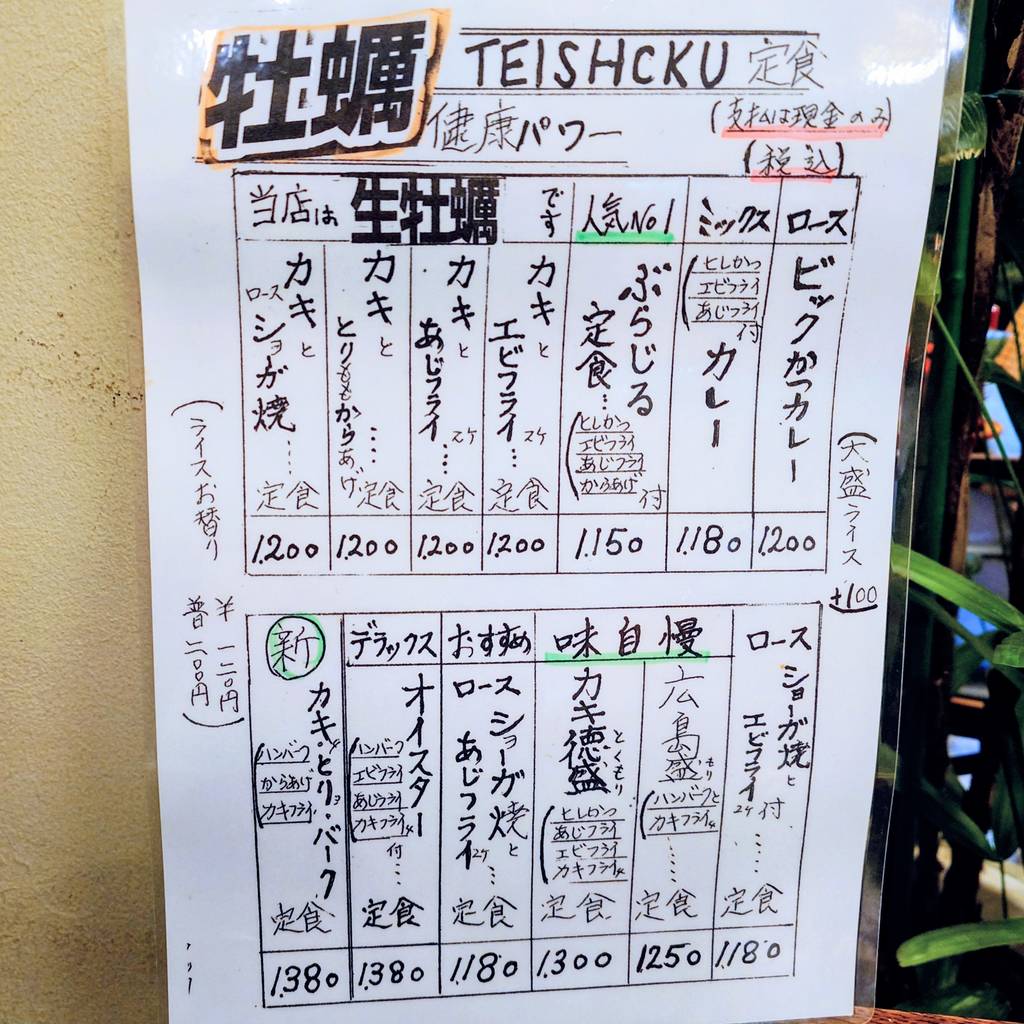 牡蠣 TEISHCKU 定食
健康パワー
(支払は現金のみ)
(税込)
ロース
ビックかつカレー
1.200
ミックス
(ヒレかつ
エビフライ
あじフライ付
カレー
1.180
人気No1
ぶらじる
定食…
(ヒレかつ
エビフライ
あじフライ
からあげ付
1.150
当店は生牡蠣です
カキと
エビフライ 2ケ…
定食
1.200
カキと
あじフライ 2ケ…
定食
1.200
カキと
とりももからあげ
定食
1.200
カキと
ロースショーガ焼……
定食
1.200
(大盛ライス
+100
(ライスお替り
半 一二〇円
普 二〇〇円)
ロース
ショーガ焼と
エビフライ 2ケ付……
定食
1.180
味自慢
広島盛もり
(ハンバーグと
カキフライ4……
定食
1.250
カキ徳盛とくもり
(ヒレかつ
あじフライ
エビフライ
カキフライ4
定食
1.300
おすすめ
ロース
ショーガ焼と
あじフライ2ケ…
定食
1.180
デラックス
オイスター
(ハンバーグ
エビフライ
あじフライ
カキフライ4
付……
定食
1.380
新
カキ・とり・バーグ
(ハンバーグ
からあげ
カキフライ
定食
1.380